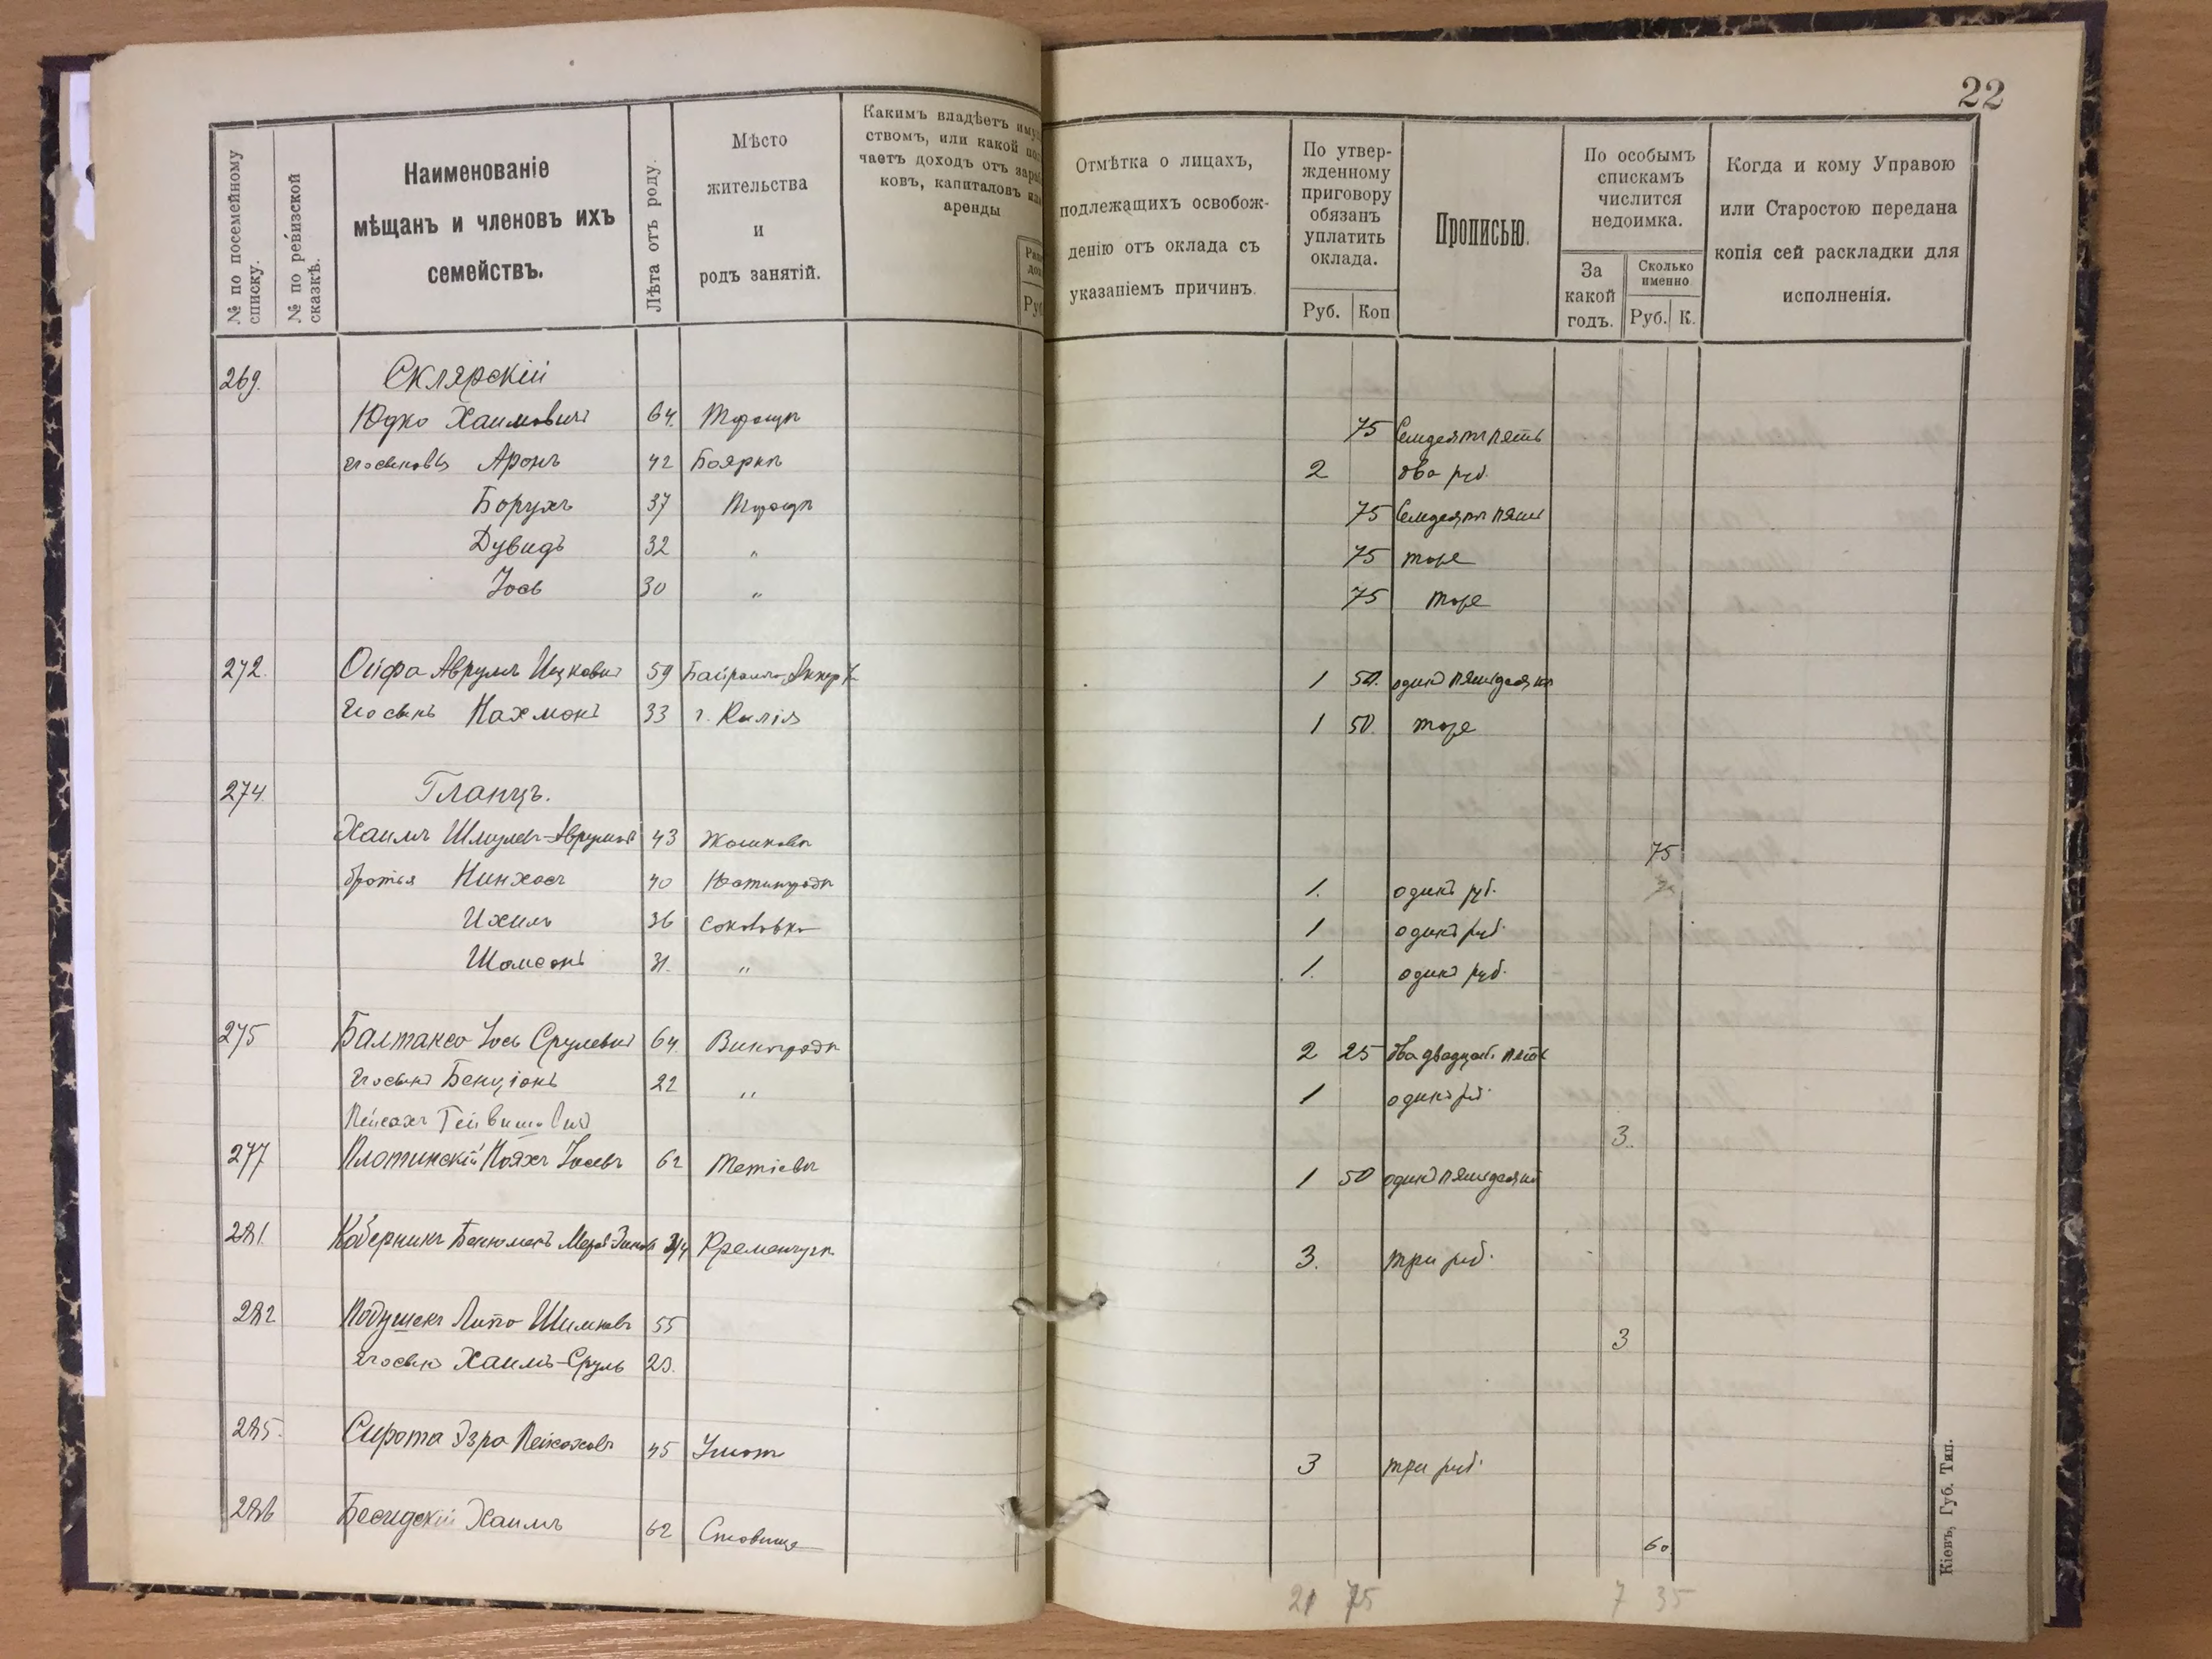 22
№ по посемейному списку.
№ по ревизской сказкѣ.
Наименованіе
мѣщанъ и членовъ ихъ
семействъ.
Лѣта отъ роду.
Мѣсто
жительства
и
родъ занятій.
Какимъ владѣетъ
ствомъ, или какой
чаетъ доходъ отъ
ковъ, капиталовъ
аренды
Руб
Отмѣтка о лицахъ,
подлежащихъ освобож-
денію отъ оклада съ
указаніемъ причинъ.
По утвер-
жденному
приговору
обязанъ
уплатить
оклада.
Руб. Коп
Прописью.
По особымъ
спискамъ
числится
недоимка.
За
какой
годъ.
Сколько
именно
Руб. К.
Когда и кому Управою
или Старостою передана
копія сей раскладки для
исполненія.
269. Склярскій
Юдко Хаимовичъ 64. 75 Семдесятъ пять
его сыновья Аронъ 42 Боярка 2 два руб.
Борухъ 37 75 Семдесятъ пять
Дувидъ 32 " 75 тоже
Іось 30 " 75 тоже
272. Аврумъ Ицковичъ 59 1 50. одинъ пятдесятъ
Его сынъ Нахманъ 33 г. Килія 1 50. тоже
274. Гланцъ.
Хаимъ 43 Жашковъ 75
братья Пинхасъ 40 1. одинъ руб.
Ихиль 36 Соколовка 1 одинъ руб.
Шамсонъ 31. " 1. одинъ руб.
275 Балтаксо Іось Срулевичъ 64 Виноградъ 2 25 два двадцать пять
Его сынъ Бенціонъ 22 " 1 одинъ руб.
Пейсахъ 3.
277 Плотинскій 62 Тетіевъ 1 50 одинъ пятдесятъ
281. Коберникъ Кременчугъ 3. три руб.
282 Подушекъ Шимковъ 55 3
Его сынъ Хаимъ-Сруль 23.
285. Сирота Эзра Пейсаховъ 45 Умань 3 три руб.
286 Беседскій Хаимъ 62 Ставище 60.
21 75 7 35
Кіевъ, Губ. Тип.